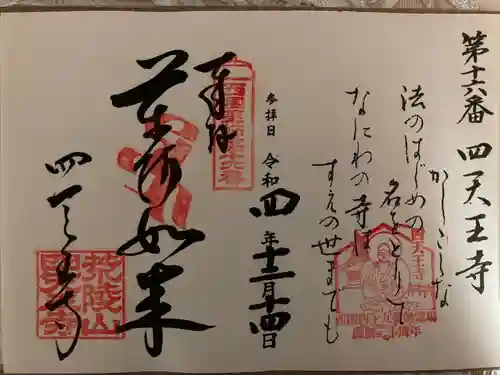 第十六番 四天王寺
法のはじめの
かしこしな
名をとりて
なにわの寺は
すえの世までも
参拝日 令和四年十二月十四日
奉拝
西国薬師第十六番
薬師如来
四天王寺
荒陵山
四天王寺